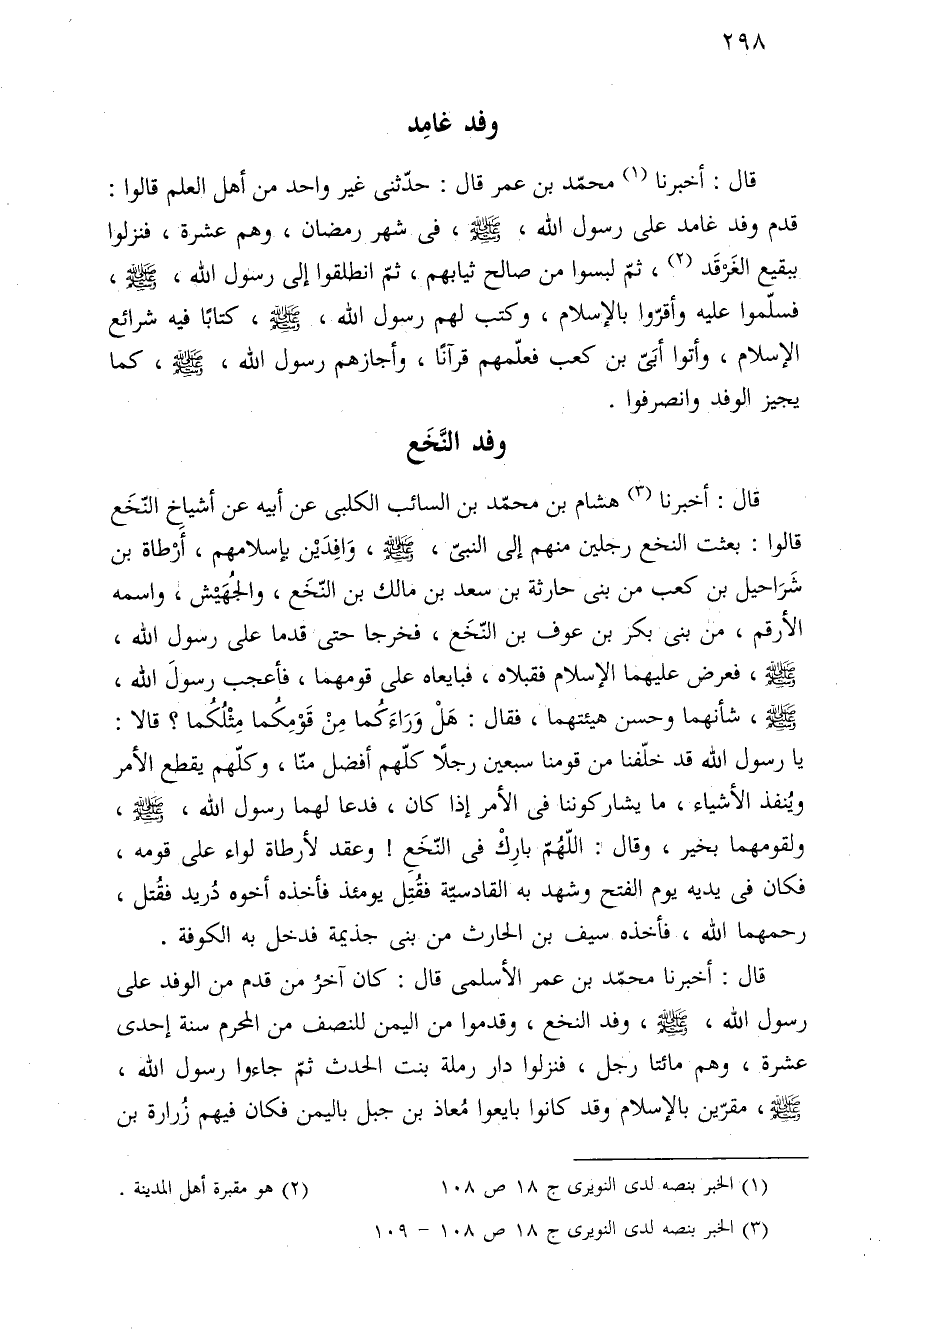 ٢٩٨
وفد غامِد
قال : أخبرنا (١) محمّد بن عمر قال : حدّثنى غير واحد من أهل العلم قالوا :
قدم وفد غامد على رسول الله ، ﷺ ، فى شهر رمضان ، وهم عشرة ، فنزلوا
ببقيع الغَرْقَد (٢) ، ثمّ لبسوا من صالح ثيابهم ، ثمّ انطلقوا إلى رسول الله ، ﷺ ،
فسلّموا عليه وأقرّوا بالإسلام ، وكتب لهم رسول الله ، ﷺ ، كتابًا فيه شرائع
الإسلام ، وأتوا أبَىّ بن كعب فعلّمهم قرآنًا ، وأجازهم رسول الله ، ﷺ ، كما
يجيز الوفد وانصرفوا .
وفد النَّخَع
قال : أخبرنا (٣) هشام بن محمّد بن السائب الكلبى عن أبيه عن أشياخ النّخَع
قالوا : بعثت النخع رجلين منهم إلى النبىّ ، ﷺ ، وَافِدَيْن بإسلامهم ، أَرْطاة بن
شَرَاحيل بن كعب من بنى حارثة بن سعد بن مالك بن النّخَع ، والجُهَيْش ، واسمه
الأرقم ، من بنى بكر بن عوف بن النّخَع ، فخرجا حتى قدما على رسول الله ،
ﷺ ، فعرض عليهما الإسلام فقبلاه ، فبايعاه على قومهما ، فأعجب رسولَ الله ،
ﷺ ، شأنهما وحسن هيئتهما ، فقال : هَلْ وَرَاءَكُما مِنْ قَوْمِكُما مِثْلُكُما ؟ قالا :
يا رسول الله قد خلّفنا من قومنا سبعين رجلًا كلّهم أفضل منّا ، وكلّهم يقطع الأمر
ويُنفذ الأشياء ، ما يشاركوننا فى الأمر إذا كان ، فدعا لهما رسول الله ، ﷺ ،
ولقومهما بخير ، وقال : اللّهُمّ بارِكْ فى النّخَعِ ! وعقد لأرطاة لواء على قومه ،
فكان فى يديه يوم الفتح وشهد به القادسيّة فقُتِل يومئذ فأخذه أخوه دُريد فقُتل ،
رحمهما الله ، فأخذه سيف بن الحارث من بنى جذيمة فدخل به الكوفة .
قال : أخبرنا محمّد بن عمر الأسلمى قال : كان آخرُ من قدم من الوفد على
رسول الله ، ﷺ ، وفد النخع ، وقدموا من اليمن للنصف من المحرم سنة إحدى
عشرة ، وهم مائتا رجل ، فنزلوا دار رملة بنت الحدث ثمّ جاءوا رسول الله ،
ﷺ ، مقرّين بالإسلام وقد كانوا بايعوا مُعاذ بن جبل باليمن فكان فيهم زُرارة بن
(١) الخبر بنصه لدى النويرى ج ١٨ ص ١٠٨ (٢) هو مقبرة أهل المدينة .
(٣) الخبر بنصه لدى النويرى ج ١٨ ص ١٠٨ - ١٠٩